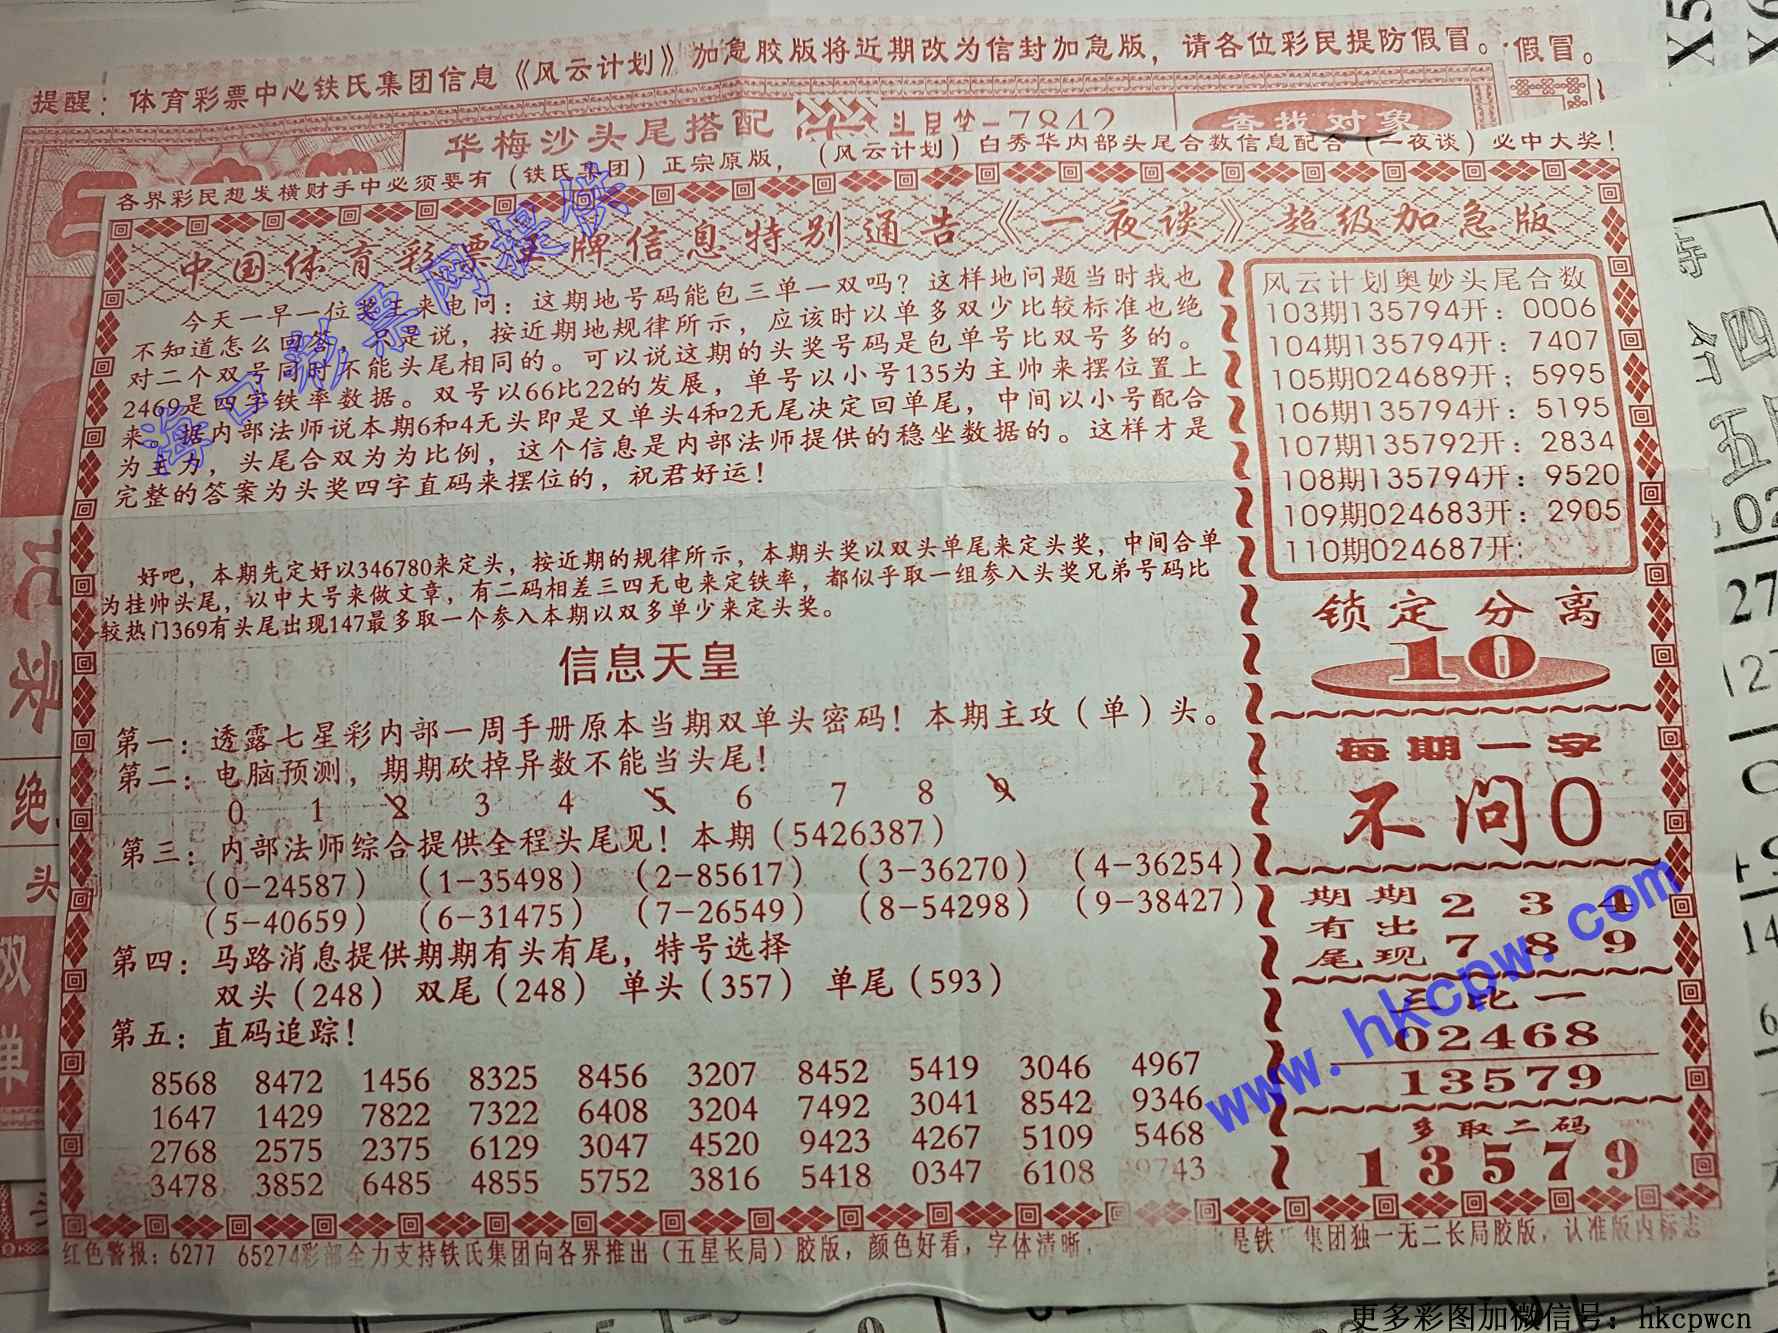 提醒：体育彩票中心铁氏集团信息《风云计划》加急胶版将近期改为信封加急版，请各位彩民提防假冒。
假冒。
华梅沙头尾搭配
7842
查找对象
各界彩民想发横财手中必须要有（铁氏集团）正宗原版，（风云计划）白秀华内部头尾合数信息配合（一夜谈）必中大奖！
中国体育彩票王牌信息特别通告《一夜谈》超级加急版
今天一早一位奖主来电问：这期地号码能包三单一双吗？这样地问题当时我也
不知道怎么回答，只是说，按近期地规律所示，应该时以单多双少比较标准也绝
对二个双号同时不能头尾相同的。可以说这期的头奖号码是包单号比双号多的。
2469是四字铁率数据。双号以66比22的发展，单号以小号135为主帅来摆位置上
来。据内部法师说本期6和4无头即是又单头4和2无尾决定回单尾，中间以小号配合
为主力，头尾合双为为比例，这个信息是内部法师提供的稳坐数据的。这样才是
完整的答案为头奖四字直码来摆位的，祝君好运！
好吧，本期先定好以346780来定头，按近期的规律所示，本期头奖以双头单尾来定头奖，中间合单
为挂帅头尾，以中大号来做文章，有二码相差三四无电来定铁率，都似乎取一组参入头奖兄弟号码比
较热门369有头尾出现147最多取一个参入本期以双多单少来定头奖。
信息天皇
第一：透露七星彩内部一周手册原本当期双单头密码！本期主攻（单）头。
第二：电脑预测，期期砍掉异数不能当头尾！
0 1 2 3 4 5 6 7 8 9
第三：内部法师综合提供全程头尾见！本期（5426387）
（0-24587）（1-35498）（2-85617）（3-36270）（4-36254）
（5-40659）（6-31475）（7-26549）（8-54298）（9-38427）
第四：马路消息提供期期有头有尾，特号选择
双头（248） 双尾（248） 单头（357） 单尾（593）
第五：直码追踪！
8568 8472 1456 8325 8456 3207 8452 5419 3046 4967
1647 1429 7822 7322 6408 3204 7492 3041 8542 9346
2768 2575 2375 6129 3047 4520 9423 4267 5109 5468
3478 3852 6485 4855 5752 3816 5418 0347 6108 9743
风云计划奥妙头尾合数
103期135794开：0006
104期135794开：7407
105期024689开；5995
106期135794开：5195
107期135792开：2834
108期135794开：9520
109期024683开：2905
110期024687开:
锁定分离
10
每期一字
不问0
期期 2 3 4
有出
尾现 7 8 9
三比一
02468
13579
多取二码
1 3 5 7 9
红色警报：6277 65274彩部全力支持铁氏集团向各界推出（五星长局）胶版，颜色好看，字体清晰，
是铁氏集团独一无二长局胶版，认准版内标志
海口彩票网提供
www.hkcpw.com
更多彩图加微信号：hkcpwcn